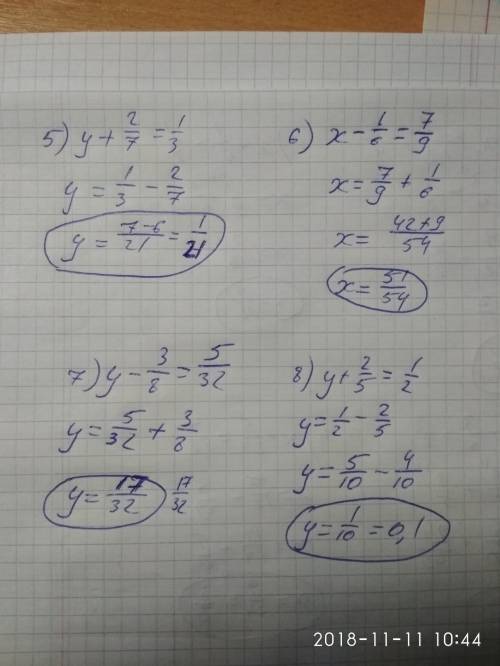 5) y + 2/7 = 1/3
y = 1/3 - 2/7
y = (7-6)/21 = 1/21
6) x - 1/6 = 7/9
x = 7/9 + 1/6
x = (42+9)/54
x = 51/54
7) y - 3/8 = 5/32
y = 5/32 + 3/8
y = 17/32 17/32
8) y + 2/5 = 1/2
y = 1/2 - 2/5
y = 5/10 - 4/10
y = 1/10 = 0,1
2018-11-11 10:44